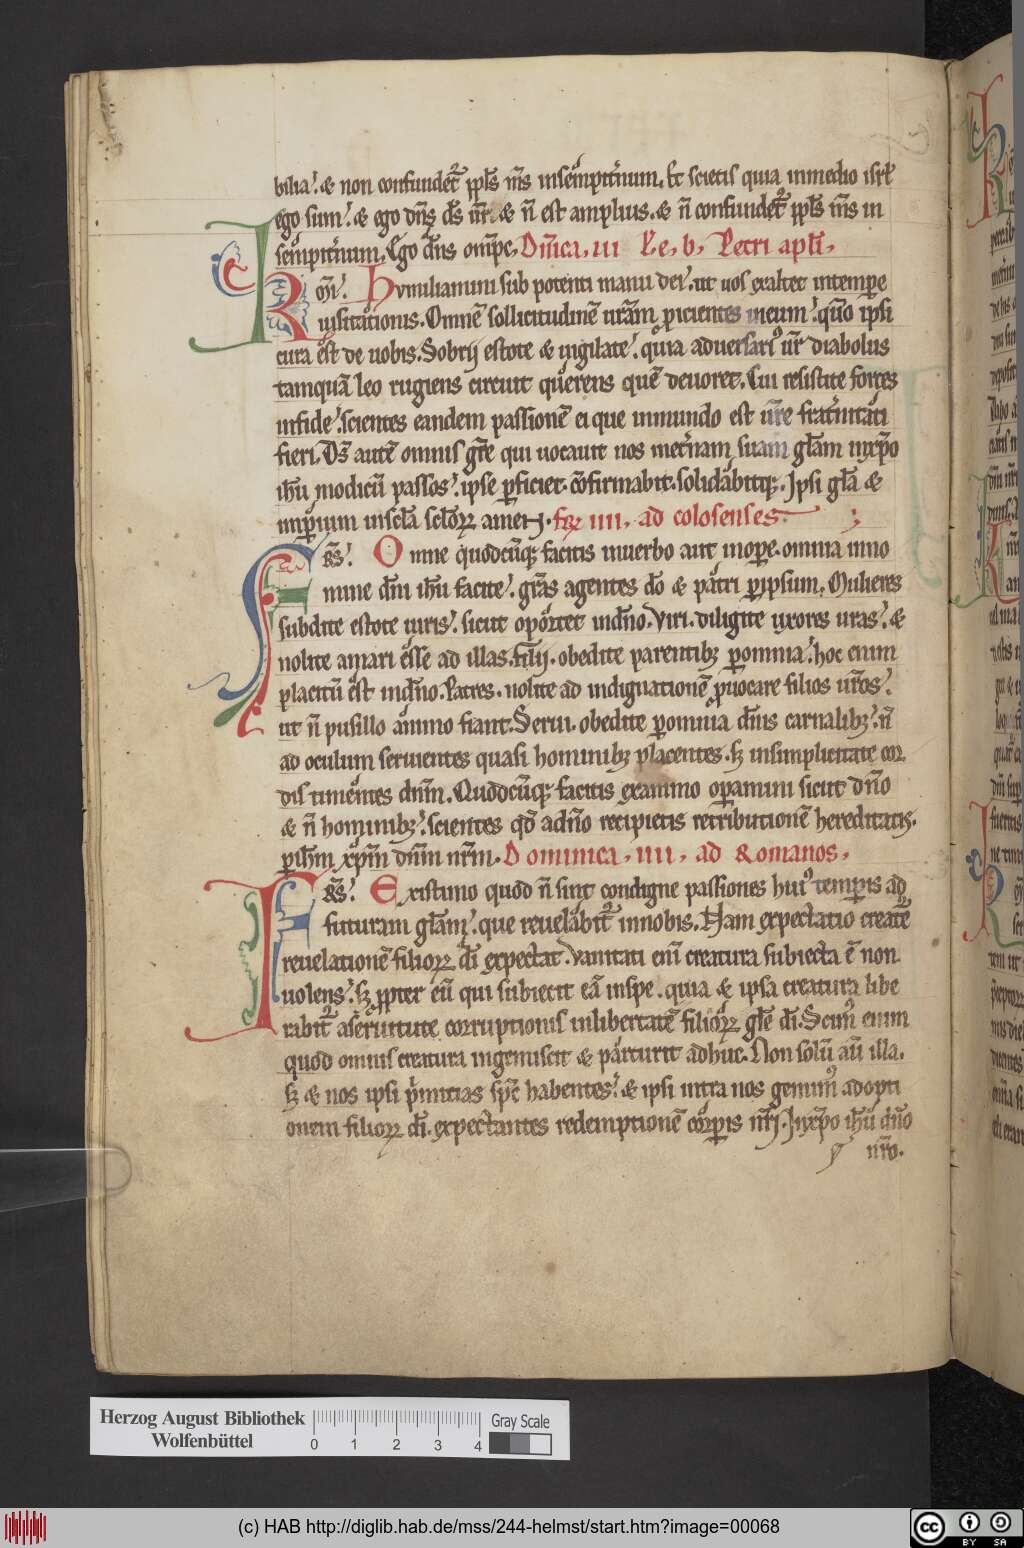 bilia. & non confundet᷑ ppl̄s m̄s insemp̄it̄num. Et scietis quia inmedio isrl̄
ego sum. & ego dn̄s ds̄ ur̄. & n̄ est amplius. & n̄ confundet᷑ ppl̄s m̄s in
semp̄it̄num. Ego dn̄s om̄ps. Dn̄ica. iii Le. b. Petri apli.
Km̄i. Humiliamini sub potenti manu dei. ut uos exaltet intempore
uisitationis. Omnē sollicitudinē urām. p̄icientes ineum. qm̄o ipsi
cura est de uobis. Sobrij estote & uigilate. quia aduersari᷒ ur̄ diabolus
tamquā leo rugiens circuit querens quē deuoret. Cui resistite fortes
infide. scientes eandem passionē ei que inmundo est ur̄e frat̄nitati
fieri. Ds̄ autē omnis gr̄e qui uocauit nos inet̄nam suam gl̄am inxp̄o
ihū modicū passos. ipse p̄ficiet. cōfirmabit. solidabitq;. Ipsi gl̄a &
imp̄ium inscl̄a scl̄oꝝ amen. fꝫ iiii. ad colosenses.
Frs̄. Omne quodcūq; facitis inuerbo aut inope. omnia inno
mine dn̄i ihū facite. grās agentes dō & patri p̄ipsum. Mulieres
subdite estote uiris. sicut oportet indn̄o. Viri. diligite uxores uras. &
nolite amari esse ad illas. Filij. obedite parentibꝫ p̄omnia. hoc enim
placitū est indn̄o. Patres. nolite ad indignationē p̄uocare filios ur̄os.
ut n̄ pusillo animo fiant. Serui. obedite p̄omnia dn̄is carnalibꝫ. n̄
ad oculum seruientes quasi hominibꝫ placentes. sꝫ insimplicitate cor
dis timentes dnm̄. Quodcūq; facitis exanimo operamini sicut dn̄o
& n̄ hominibꝫ. scientes qd̄ adn̄o recipietis retributionē hereditatis.
p̄ihm̄ xp̄m dnm̄ nr̄m. Dominica. iiii. ad Romanos.
Frs̄. Existimo quod n̄ sint condigne passiones hui᷒ temporis ad
futuram gl̄am. que reuelabit᷑ innobis. Nam expectatio creatē
reuelationē filioꝝ dī expectat. Vanitati enī creatura subiecta ē non
uolens. sꝫ ppter eū qui subiecit eā inspe. quia & ipsa creatura libe
rabit᷑ aseruitute corruptionis inlibertatē filioꝝ gl̄e dī. Scim᷒ enim
quod omnis creatura ingemiscit & parturit adhuc. Non solū aū illa.
sꝫ & nos ipsi p̄mitias spc̄ habentes. & ipsi intra nos gemim᷒ adopti
onem filioꝝ dī. expectantes redemptionē corporis nr̄i. Inxp̄o ihū dn̄o
nr̄o.
Herzog August Bibliothek
Wolfenbüttel
Gray Scale
0 1 2 3 4
(c) HAB http://diglib.hab.de/mss/244-helmst/start.htm?image=00068
cc BY SA